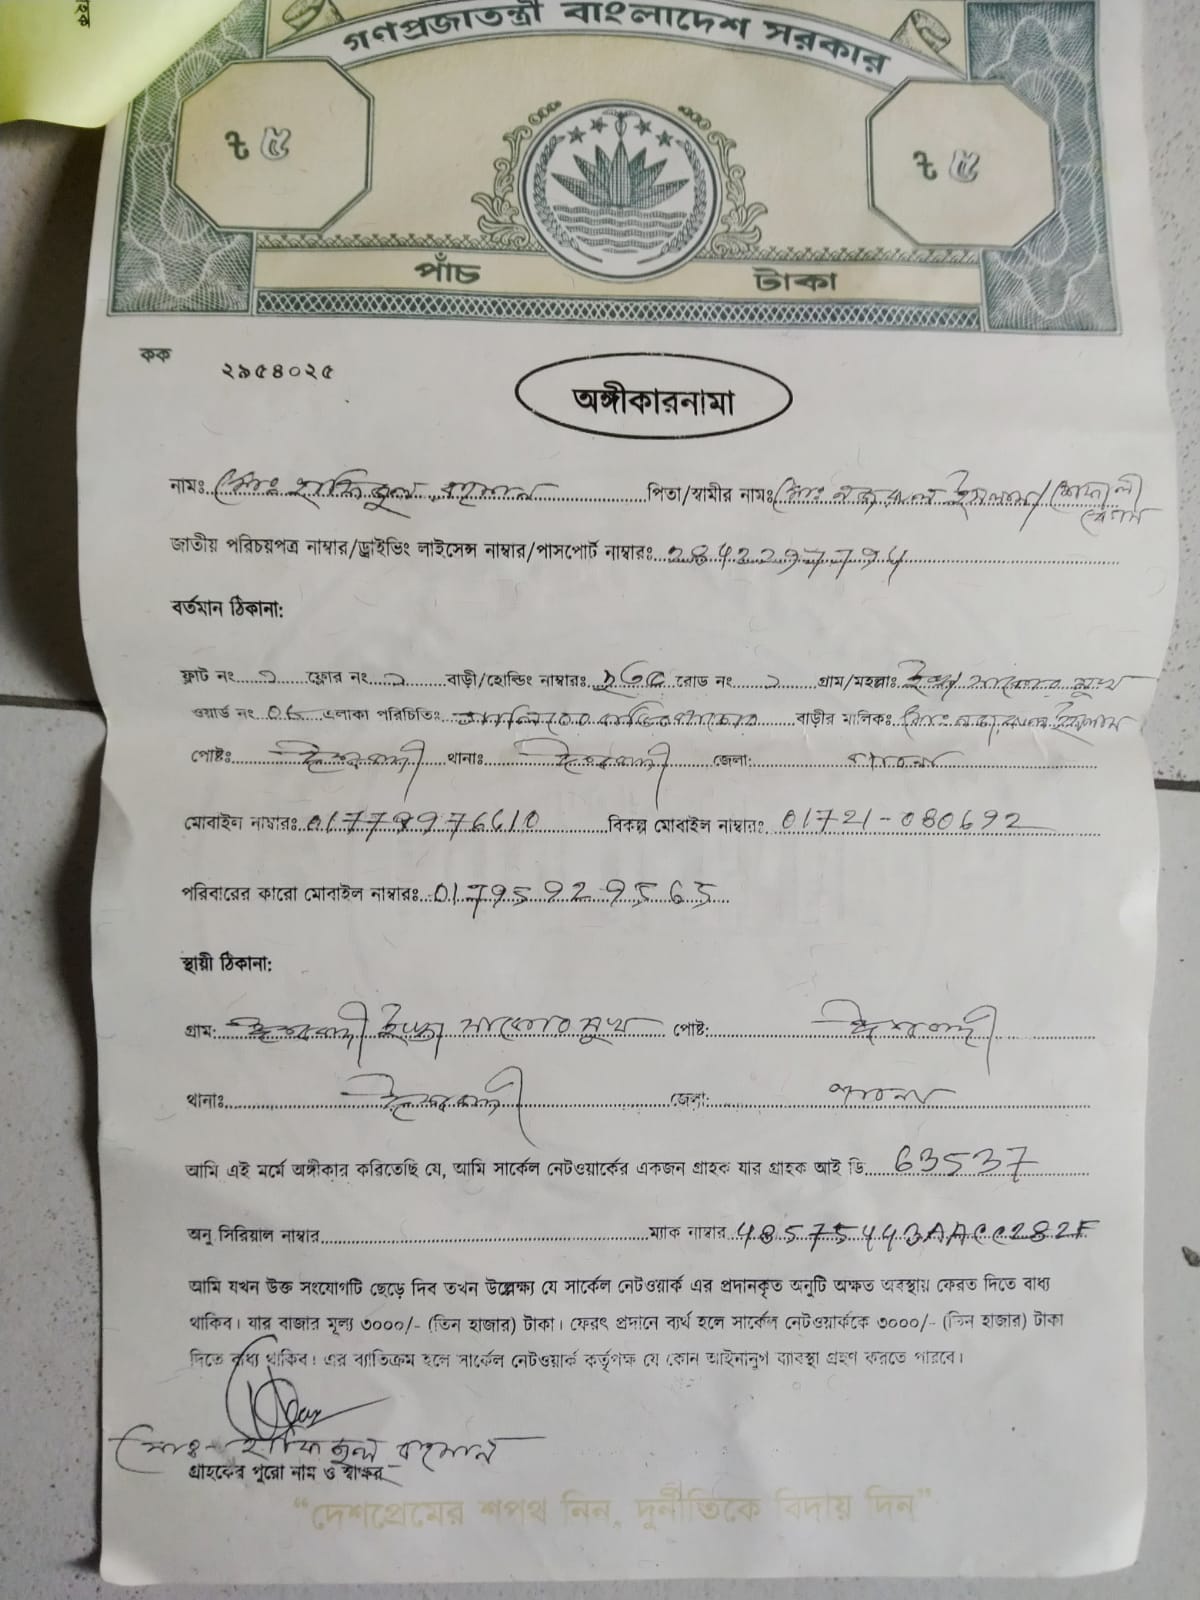 গণপ্রজাতন্ত্রী বাংলাদেশ সরকার
৳ ৫ ৳ ৫
পাঁচ টাকা
কক ২৯৫৪০২৫
অঙ্গীকারনামা
নামঃ মোঃ হাফিজুল রহমান পিতা/স্বামীর নামঃ মোঃ নজরুল ইসলাম/
জাতীয় পরিচয়পত্র নাম্বার/ড্রাইভিং লাইসেন্স নাম্বার/পাসপোর্ট নাম্বারঃ 2842297794
বর্তমান ঠিকানা:
ফ্লাট নং ফ্লোর নং বাড়ী/হোল্ডিং নাম্বারঃ রোড নং গ্রাম/মহল্লাঃ
ওয়ার্ড নং 06 এলাকা পরিচিতিঃ বাড়ীর মালিকঃ মোঃ নজরুল ইসলাম
পোষ্টঃ ঈশ্বরদী থানাঃ ঈশ্বরদী জেলা: পাবনা
মোবাইল নাম্বারঃ বিকল্প মোবাইল নাম্বারঃ 01721-080692
পরিবারের কারো মোবাইল নাম্বারঃ 01795929565
স্থায়ী ঠিকানা:
গ্রাম: পোষ্ট: ঈশ্বরদী
থানাঃ ঈশ্বরদী জেলা: পাবনা
আমি এই মর্মে অঙ্গীকার করিতেছি যে, আমি সার্কেল নেটওয়ার্কের একজন গ্রাহক যার গ্রাহক আই ডি 63537
অনু সিরিয়াল নাম্বার ম্যাক নাম্বার 48575443AACC282F
আমি যখন উক্ত সংযোগটি ছেড়ে দিব তখন উল্লেক্ষ্য যে সার্কেল নেটওয়ার্ক এর প্রদানকৃত অনুটি অক্ষত অবস্থায় ফেরত দিতে বাধ্য
থাকিব। যার বাজার মূল্য ৩০০০/- (তিন হাজার) টাকা। ফেরৎ প্রদানে ব্যর্থ হলে সার্কেল নেটওয়ার্ককে ৩০০০/- (তিন হাজার) টাকা
দিতে বাধ্য থাকিব। এর ব্যাতিক্রম হলে সার্কেল নেটওয়ার্ক কর্তৃপক্ষ যে কোন আইনানুগ ব্যাবস্থা গ্রহণ করতে পারবে।
মোঃ- হাফিজুল রহমান
গ্রাহকের পুরো নাম ও স্বাক্ষর
“দেশপ্রেমের শপথ নিন, দুর্নীতিকে বিদায় দিন”